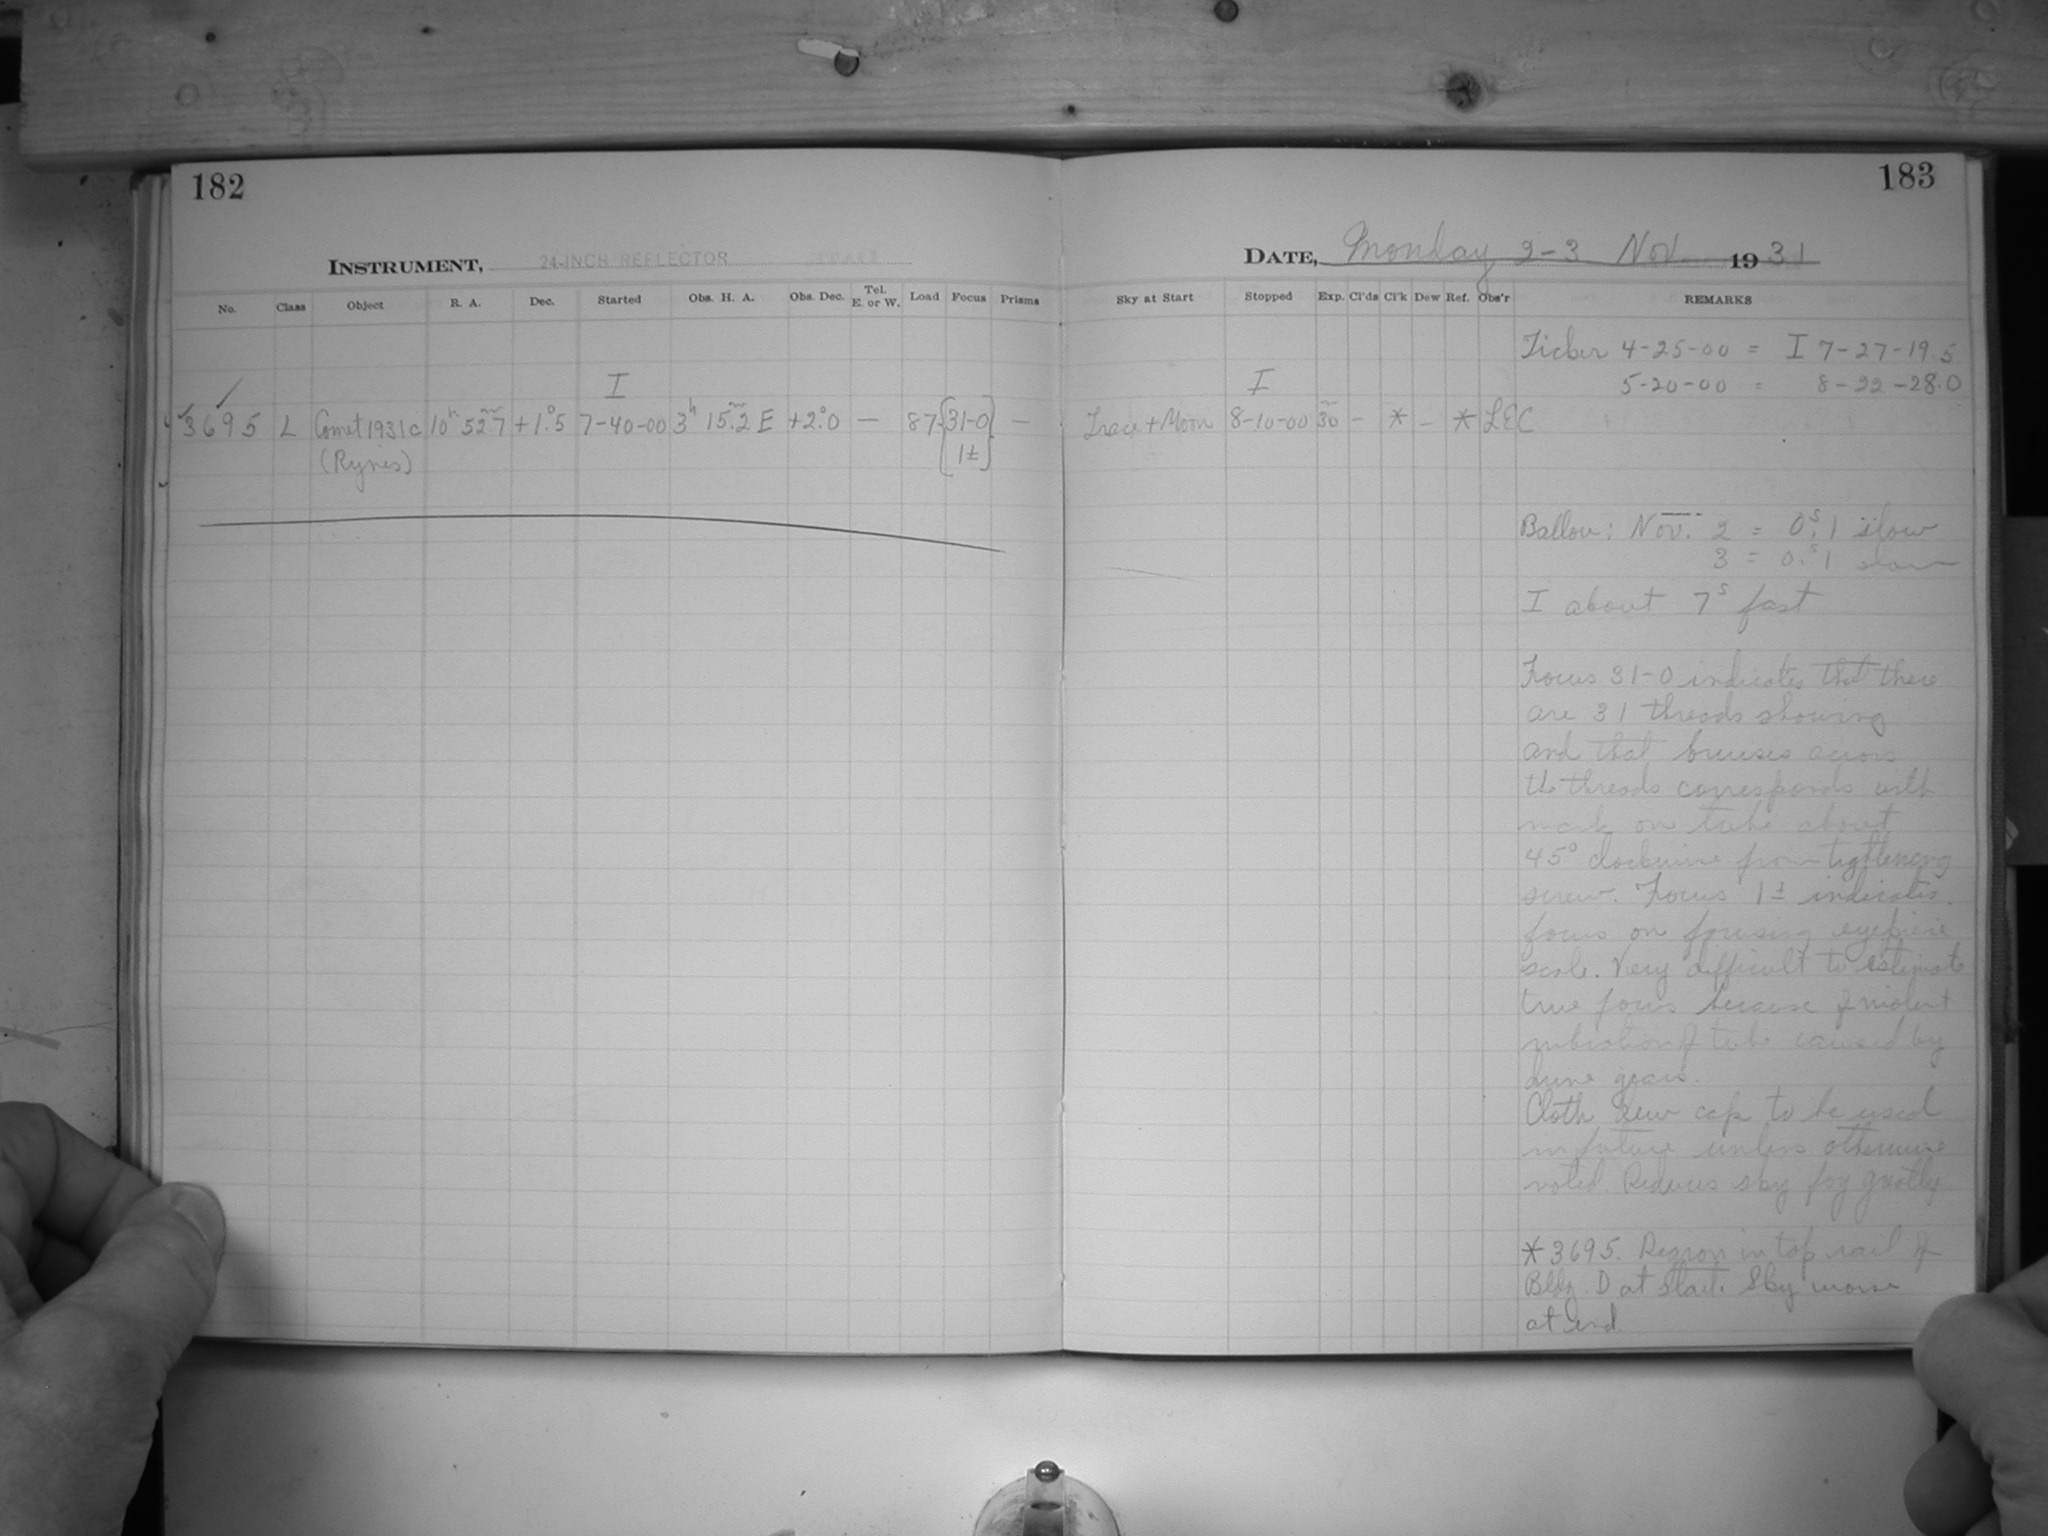 182
INSTRUMENT, 24-INCH REFLECTOR
No. Class Object R. A. Dec. Started Obs. H. A. Obs. Dec. Tel. E. or W. Load Focus Prisms
I
3695 L Comet 1931c 10h 52m.7 +1°.5 7-40-00 3h 15m.2 E +2°.0 — 87 {31-0 —
(Rynes) 1±}
183
DATE, Monday 2-3 Nov. 1931
Sky at Start Stopped Exp. Cl'ds Cl'k Dew Ref. Obs'r REMARKS
Ticker 4-25-00 = I 7-27-19.5
5-20-00 = 8-22-28.0
I
Trace + Moon 8-10-00 30 - * - * LEC
Ballou: Nov. 2 = 0s.1 slow
3 = 0s.1 slow
I about 7s fast
Focus 31-0 indicates that there
are 31 threads showing
and that bruises across
the threads corresponds with
mark on tube about
45° clockwise from tightening
screw. Focus 1± indicates
focus on focusing eyepiece
scale. Very difficult to estimate
true focus because of violent
vibration of tube caused by
drive gears.
Cloth dew cap to be used
in future unless otherwise
noted. Reduces sky fog greatly
* 3695. Region in top rail of
Bldg. D at start. Sky worse
at end.